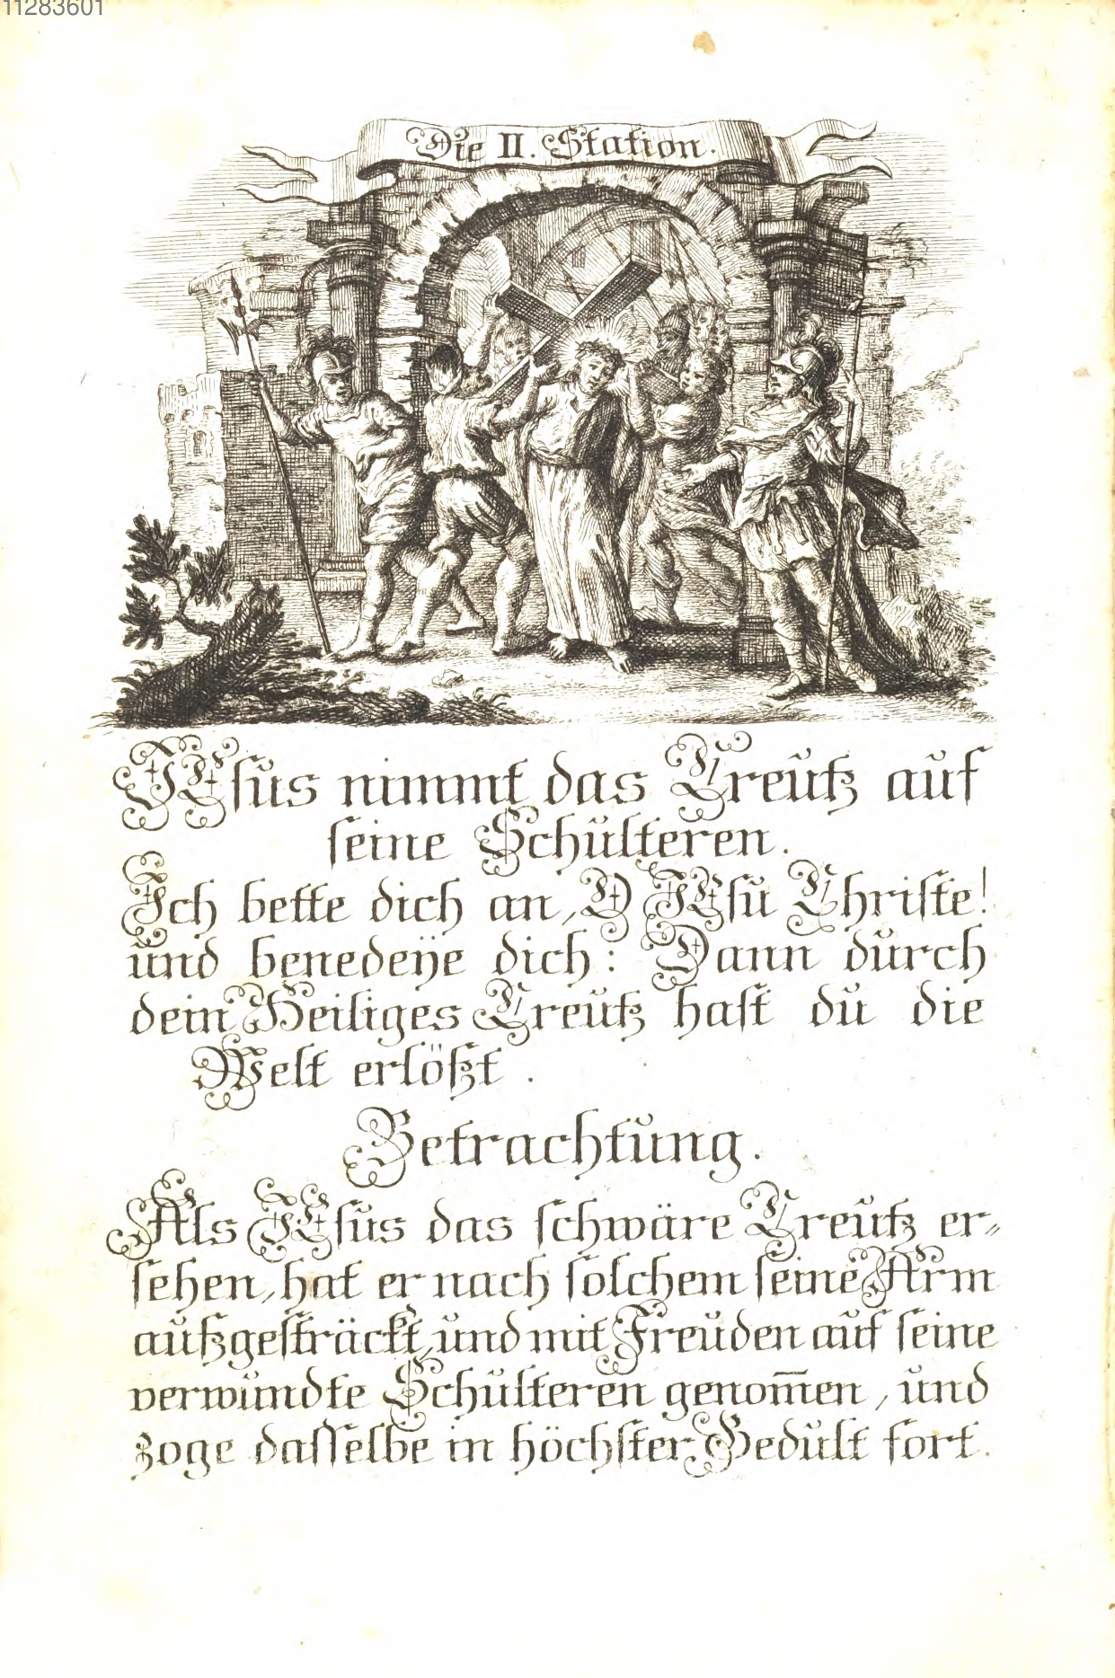 11283601
Die II. Station.
JEsus nimmt das Creutz auf
seine Schulteren.
Ich bette dich an, O JEsu Christe!
und benedeÿe dich: Dann durch
dein Heiliges Creutz hast du die
Welt erlößt.
Betrachtung.
Als JEsus das schwäre Creutz er-
sehen, hat er nach solchem seine Arm
außgesträckt, und mit Freuden auf seine
verwundte Schulteren genom̅en, und
zoge dasselbe in höchster Gedult fort.